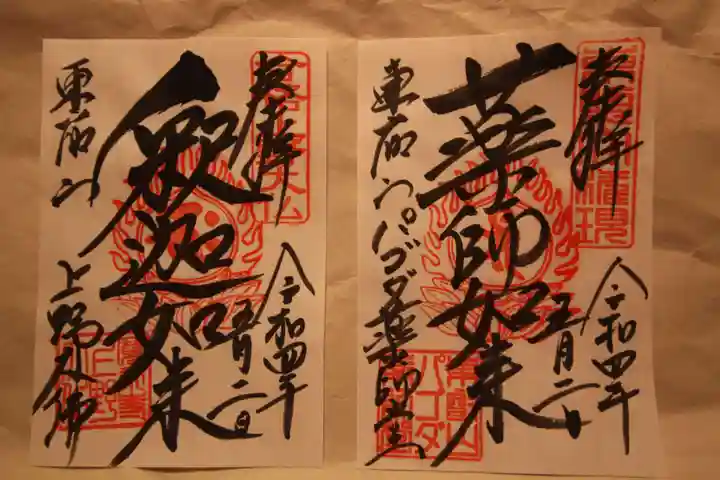 奉拝
令和四年
五月二日
薬師如来
東叡山パゴダ薬師堂
奉拝
令和四年
五月二日
釈迦如来
東叡山
上野大佛